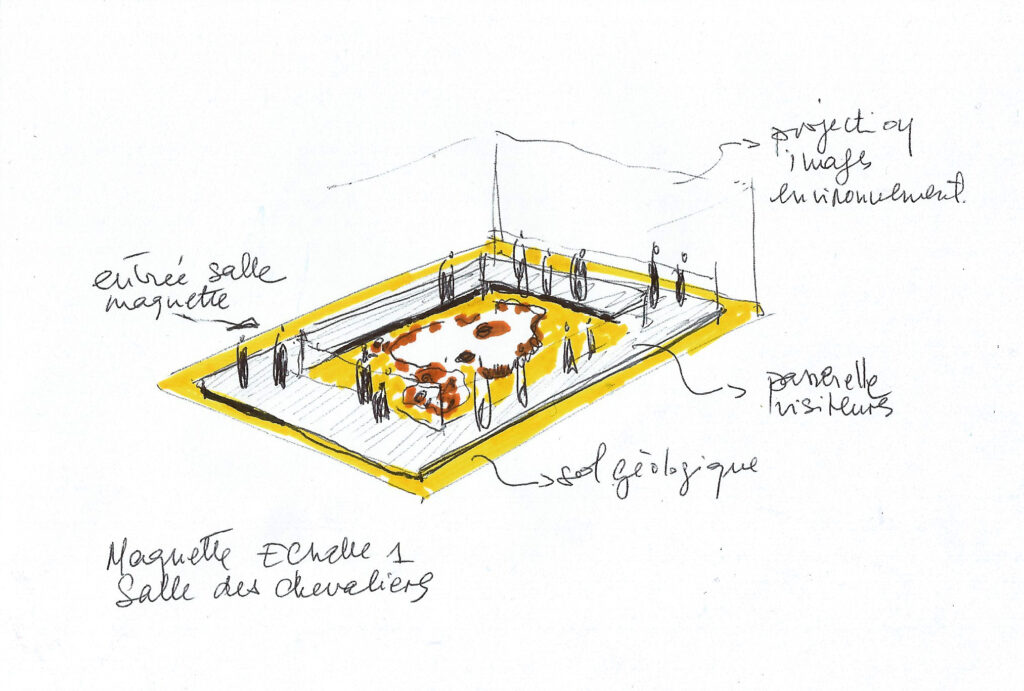 projection
images
environnement.
entrée salle
maquette
passerelle
visiteurs
sol géologique
Maquette Echelle 1
Salle des chevaliers